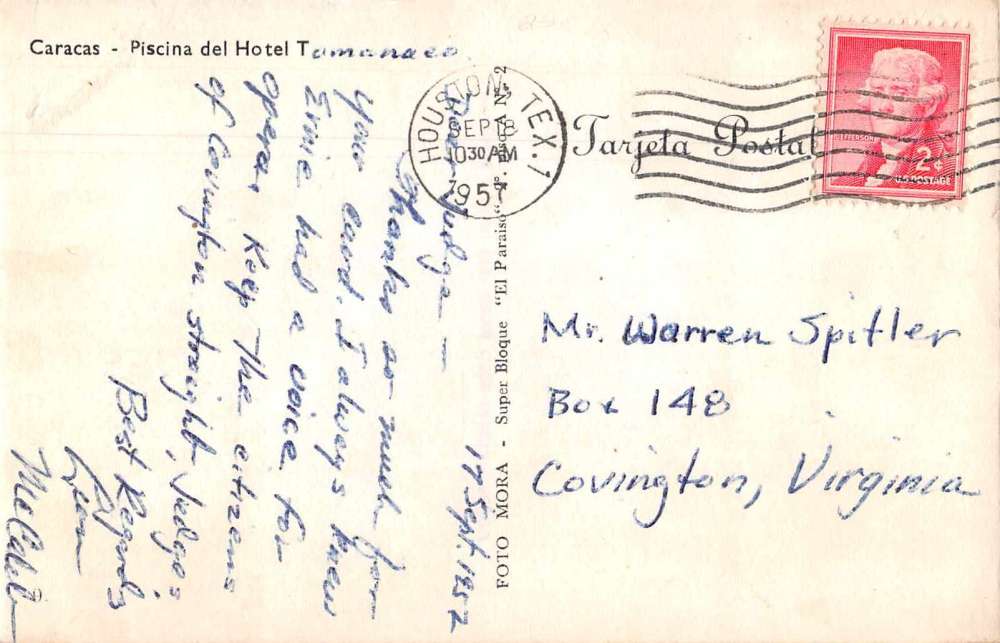 Caracas - Piscina del Hotel Tamanaco
HOUSTON, TEX. 1
SEP 18
10 30 AM
1957
Tarjeta Postal
JEFFERSON
2¢
U.S. POSTAGE
FOTO MORA - Super Bloque "El Paraiso"
17 Sept. 1952
Dear Judge —
Thanks so much for
your card. I always knew
Ernie had a voice for
opera. Keep the citizens
of Covington straight, Judge.
Best Regards
Mr. Warren Spitler
Box 148
Covington, Virginia